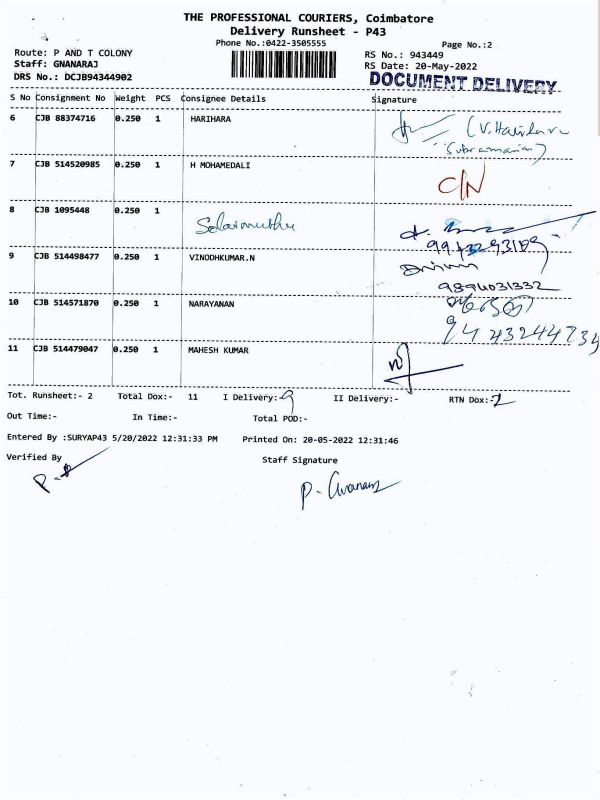 THE PROFESSIONAL COURIERS, Coimbatore
Delivery Runsheet - P43
Phone No.:0422-3505555
Page No.:2
Route: P AND T COLONY
RS No.: 943449
Staff: GNANARAJ
RS Date: 20-May-2022
DRS No.: DCJB94344902
DOCUMENT DELIVERY
S No Consignment No Weight PCS Consignee Details Signature
6 CJB 88374716 0.250 1 HARIHARA (V.Harihara
Subramanian)
7 CJB 514520985 0.250 1 H MOHAMEDALI
C/N
8 CJB 1095448 0.250 1
Solaimuthu
9 CJB 514498477 0.250 1 VINODHKUMAR.N
9894031332
10 CJB 514571870 0.250 1 NARAYANAN
9443244734
11 CJB 514479047 0.250 1 MAHESH KUMAR
Tot. Runsheet:- 2 Total Dox:- 11 I Delivery:- 9 II Delivery:- RTN Dox:- 2
Out Time:- In Time:- Total POD:-
Entered By :SURYAP43 5/20/2022 12:31:33 PM Printed On: 20-05-2022 12:31:46
Verified By Staff Signature
P. Gnanaraj